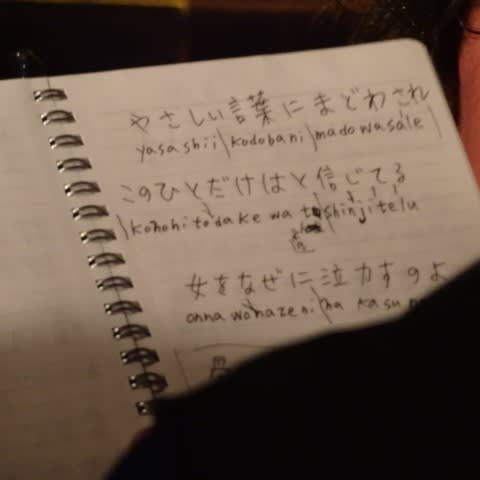 やさしい言葉にまどわされ
yasashii kodobani madowasale
このひとだけはと信じてる
konohitodake wa to shinjitelu
女をなぜに泣カすのよ
onna wo nazeni na kasu